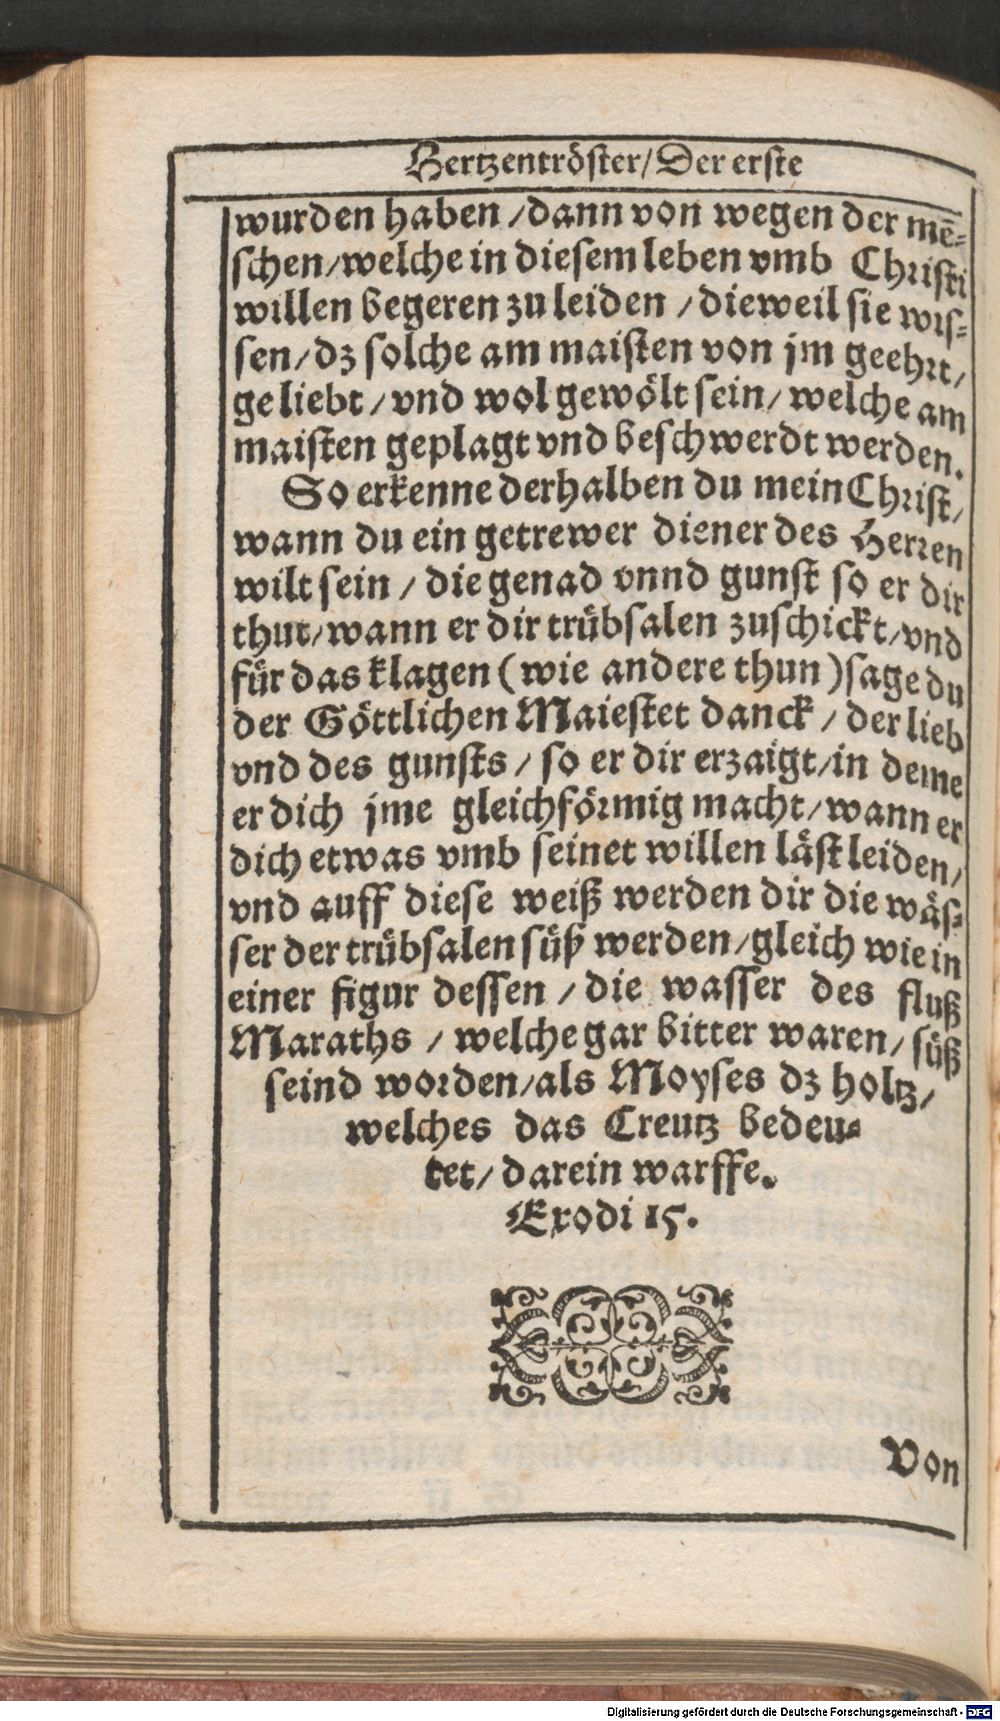 Hertzentröster/ Der erste
wurden haben / dann von wegen der mē-
schen/ welche in diesem leben vmb Christi
willen begeren zu leiden / dieweil sie wis-
sen/ dz solche am maisten von jm geehrt/
geliebt / vnd wol gewölt sein/ welche am
maisten geplagt vnd beschwerdt werden.
So erkenne derhalben du mein Christ/
wann du ein getrewer diener des Herren
wilt sein / die genad vnnd gunst so er dir
thut/ wann er dir trübsalen zuschickt/ vnd
für das klagen (wie andere thun) sage du
der Göttlichen Maiestet danck / der lieb
vnd des gunsts / so er dir erzaigt/ in deme
er dich jme gleichförmig macht/ wann er
dich etwas vmb seinet willen läst leiden/
vnd auff diese weiß werden dir die wäs-
ser der trübsalen süß werden/ gleich wie in
einer figur dessen / die wasser des fluß
Maraths / welche gar bitter waren/ süß
seind worden/ als Moyses dz holtz/
welches das Creutz bedeu-
tet/ darein warffe.
Exodi 15.
Von
Digitalisierung gefördert durch die Deutsche Forschungsgemeinschaft - DFG